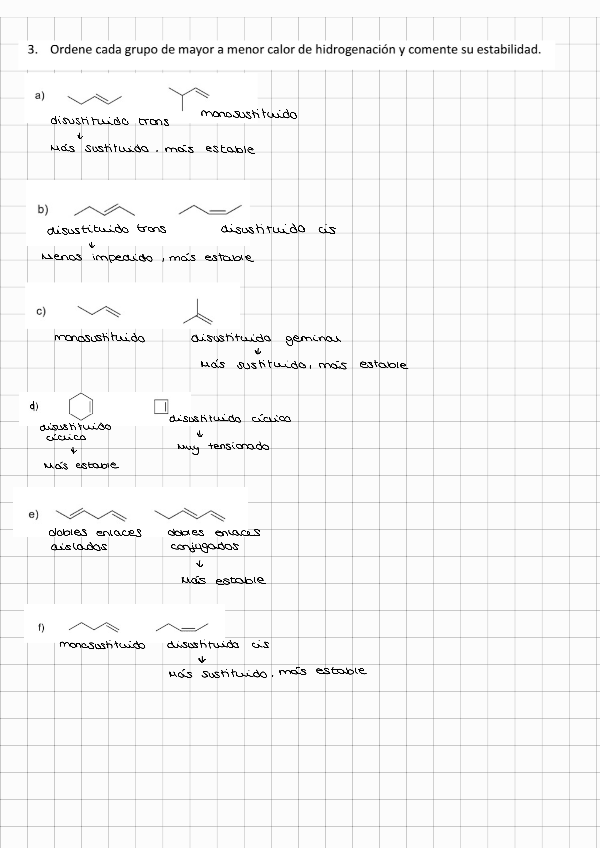 3. Ordene cada grupo de mayor a menor calor de hidrogenación y comente su estabilidad.
a)
disustituido trans monosustituido
↓
Más sustituido, más estable
b)
disustituido trans disustituido cis
↓
Menos impedido, más estable
c)
monosustituido disustituido geminal
↓
Más sustituido, más estable
d)
disustituido cíclico
disustituido
cíclico
↓
Muy tensionado
↓
Más estable
e)
dobles enlaces dobles enlaces
aislados conjugados
↓
Más estable
f)
monosustituido disustituido cis
↓
Más sustituido, más estable